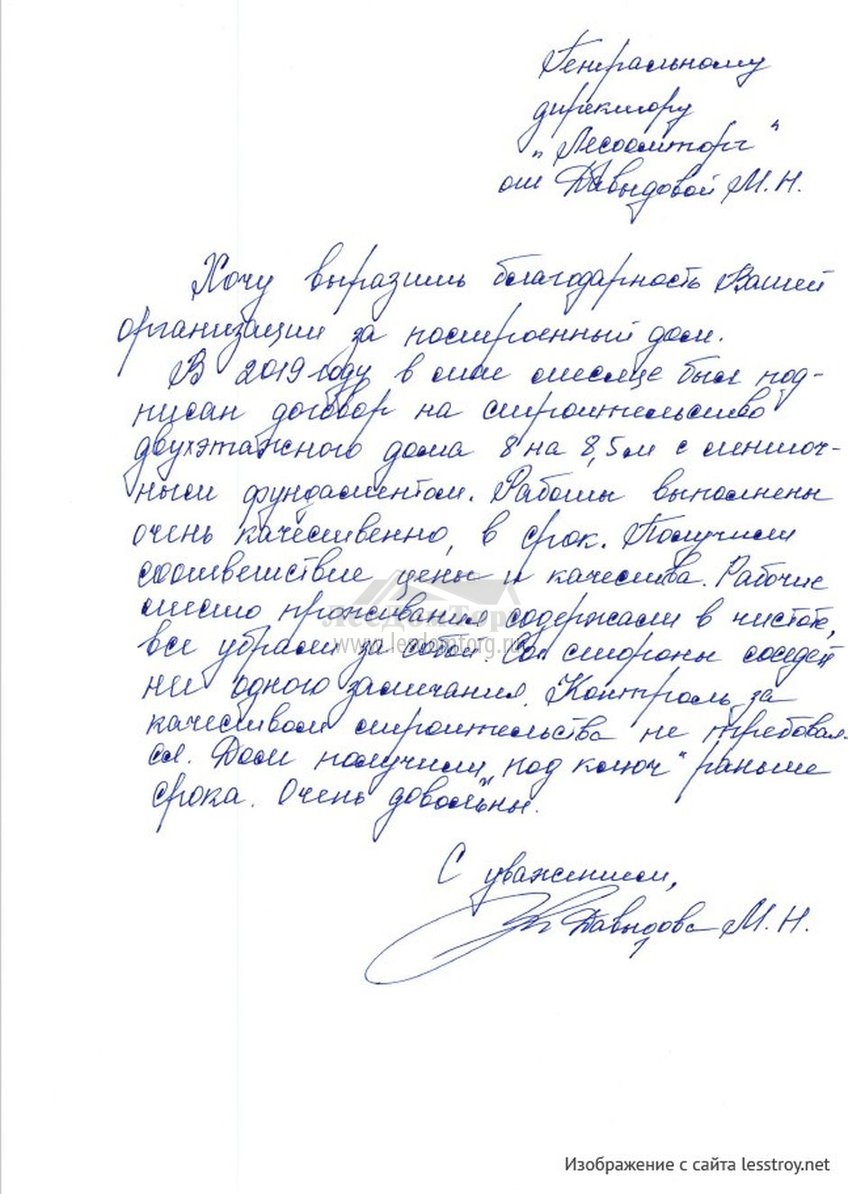 Генеральному
директору
"Лесдомторг"
от Давыдовой М.Н.
Хочу выразить благодарность Вашей
организации за построенный дом.
В 2019 году в мае месяце был под-
писан договор на строительство
двухэтажного дома 8 на 8,5м с ленточ-
ным фундаментом. Работы выполнены
очень качественно, в срок. Получили
соответствие цены и качества. Рабочие
место проживания содержали в чистоте,
все убрали за собой. Со стороны соседей
ни одного замечания. Контроль за
качеством строительства не требовал-
ся. Дом получили "под ключ" раньше
срока. Очень довольны.
С уважением,
Давыдова М.Н.
ЛесДомТорг
www.lesdomtorg.ru
Изображение с сайта lesstroy.net